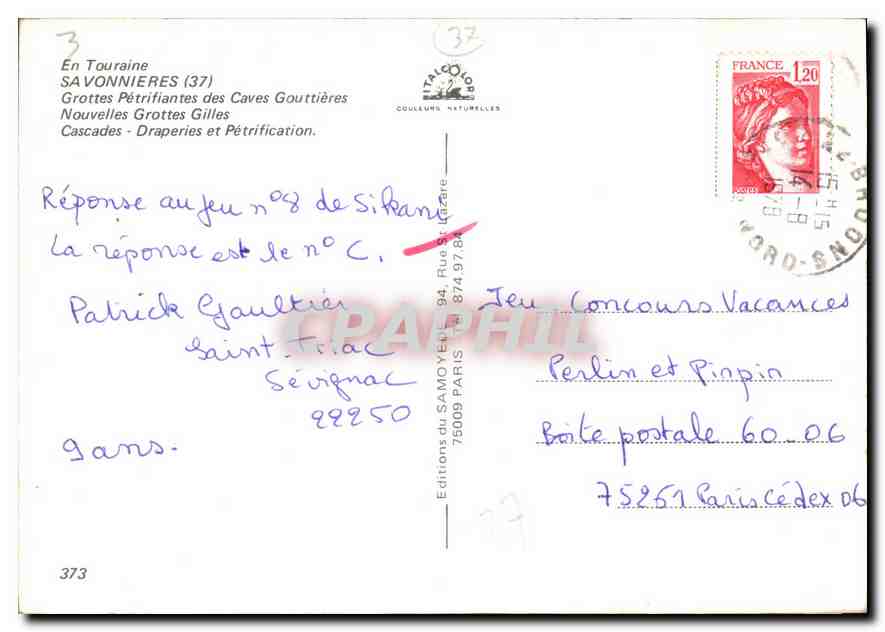 3
37
En Touraine
SAVONNIERES (37)
Grottes Pétrifiantes des Caves Gouttières
Nouvelles Grottes Gilles
Cascades - Draperies et Pétrification.
ITALCOLOR
COULEURS NATURELLES
FRANCE 1,20
POSTES
15H15
14-8
1978
BROONS
NORD
Réponse au jeu n°8 de Sikani
La réponse est le n° C.
Patrick Gaultier
Saint-Triac
Sévignac
22250
9 ans.
Editions du SAMOYEDE - 94, Rue St Lazare
75009 PARIS Tél. 874.97.84
CPAPHIL
Jeu Concours Vacances
Perlin et Pinpin
Boite postale 60-06
75261 Paris Cédex 06
373